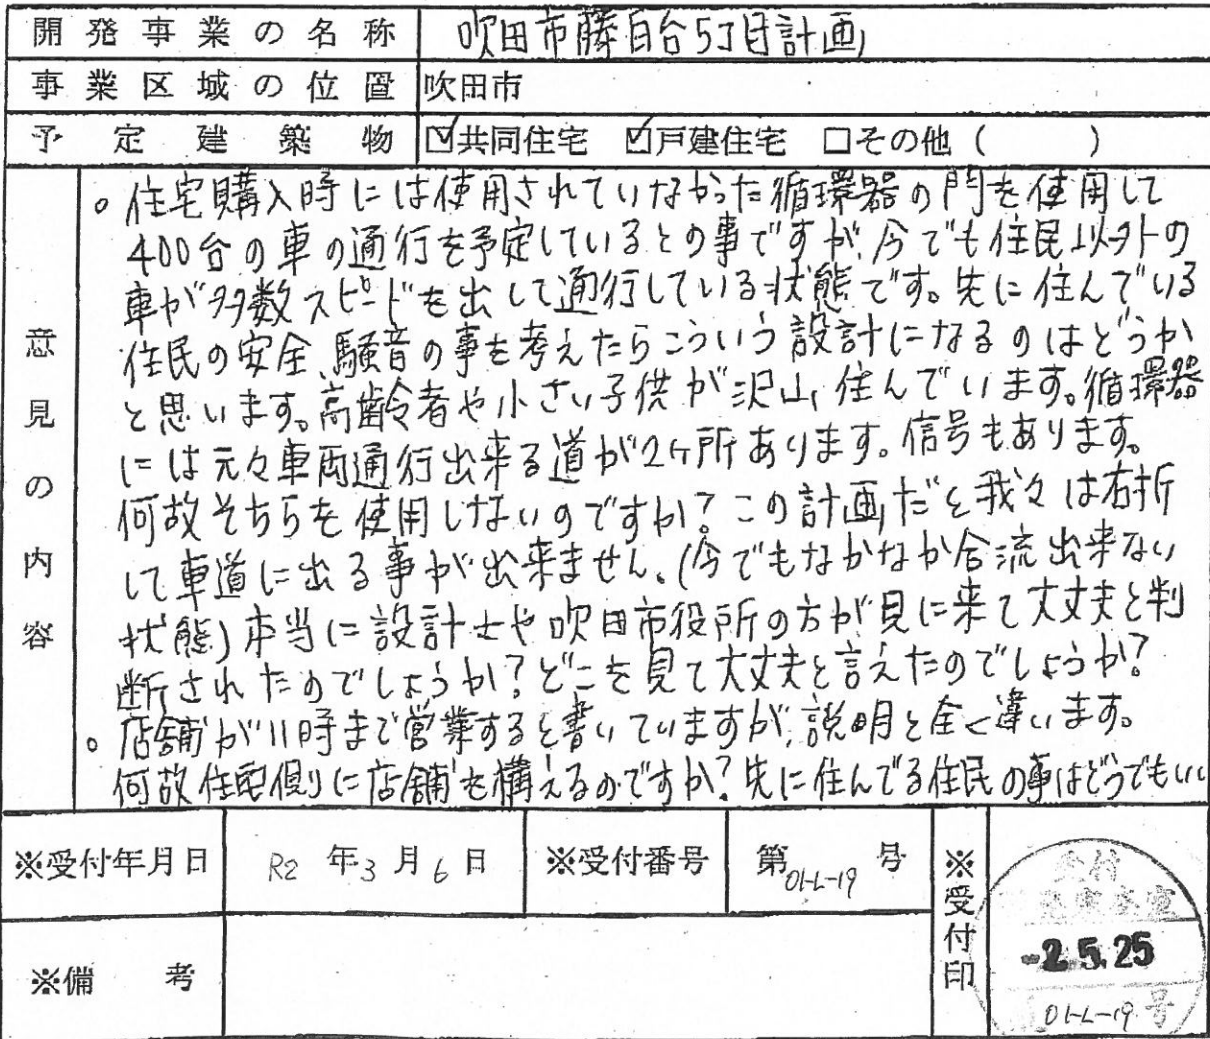 開発事業の名称 吹田市藤白台5丁目計画
事業区域の位置 吹田市
予定建築物 ☑共同住宅 ☑戸建住宅 □その他（ ）
意見の内容
。住宅購入時には使用されていなかった循環器の門を使用して
400台の車の通行を予定しているとの事ですが、今でも住民以外の
車が多数スピードを出して通行している状態です。先に住んでいる
住民の安全、騒音の事を考えたらこういう設計になるのはどうか
と思います。高齢者や小さい子供が沢山住んでいます。循環器
には元々車両通行出来る道が2ヶ所あります。信号もあります。
何故そちらを使用しないのですか？この計画だと我々は右折
して車道に出る事が出来ません。(今でもなかなか合流出来ない
状態)本当に設計士や吹田市役所の方が見に来て大丈夫と判
断されたのでしょうか？どこを見て大丈夫と言えたのでしょうか？
。店舗が11時まで営業すると書いていますが、説明と全く違います。
何故住宅側に店舗を構えるのですか？先に住んでる住民の事はどうでもいい
※受付年月日 R2年3月6日 ※受付番号 第01-L-19号 ※受付印
※備考
受付
-2.5.25
01-L-19号